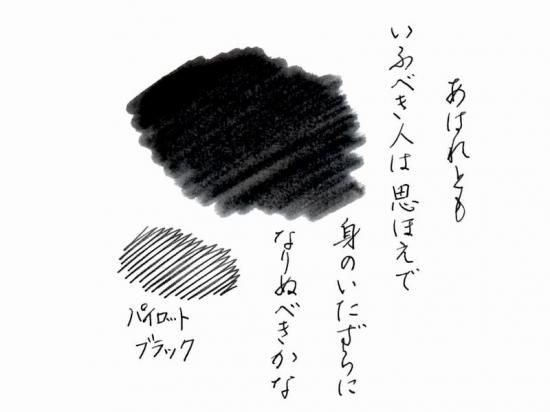 あはれとも
いふべき人は思ほえで
身のいたずらに
なりぬべきかな
パイロット
ブラック